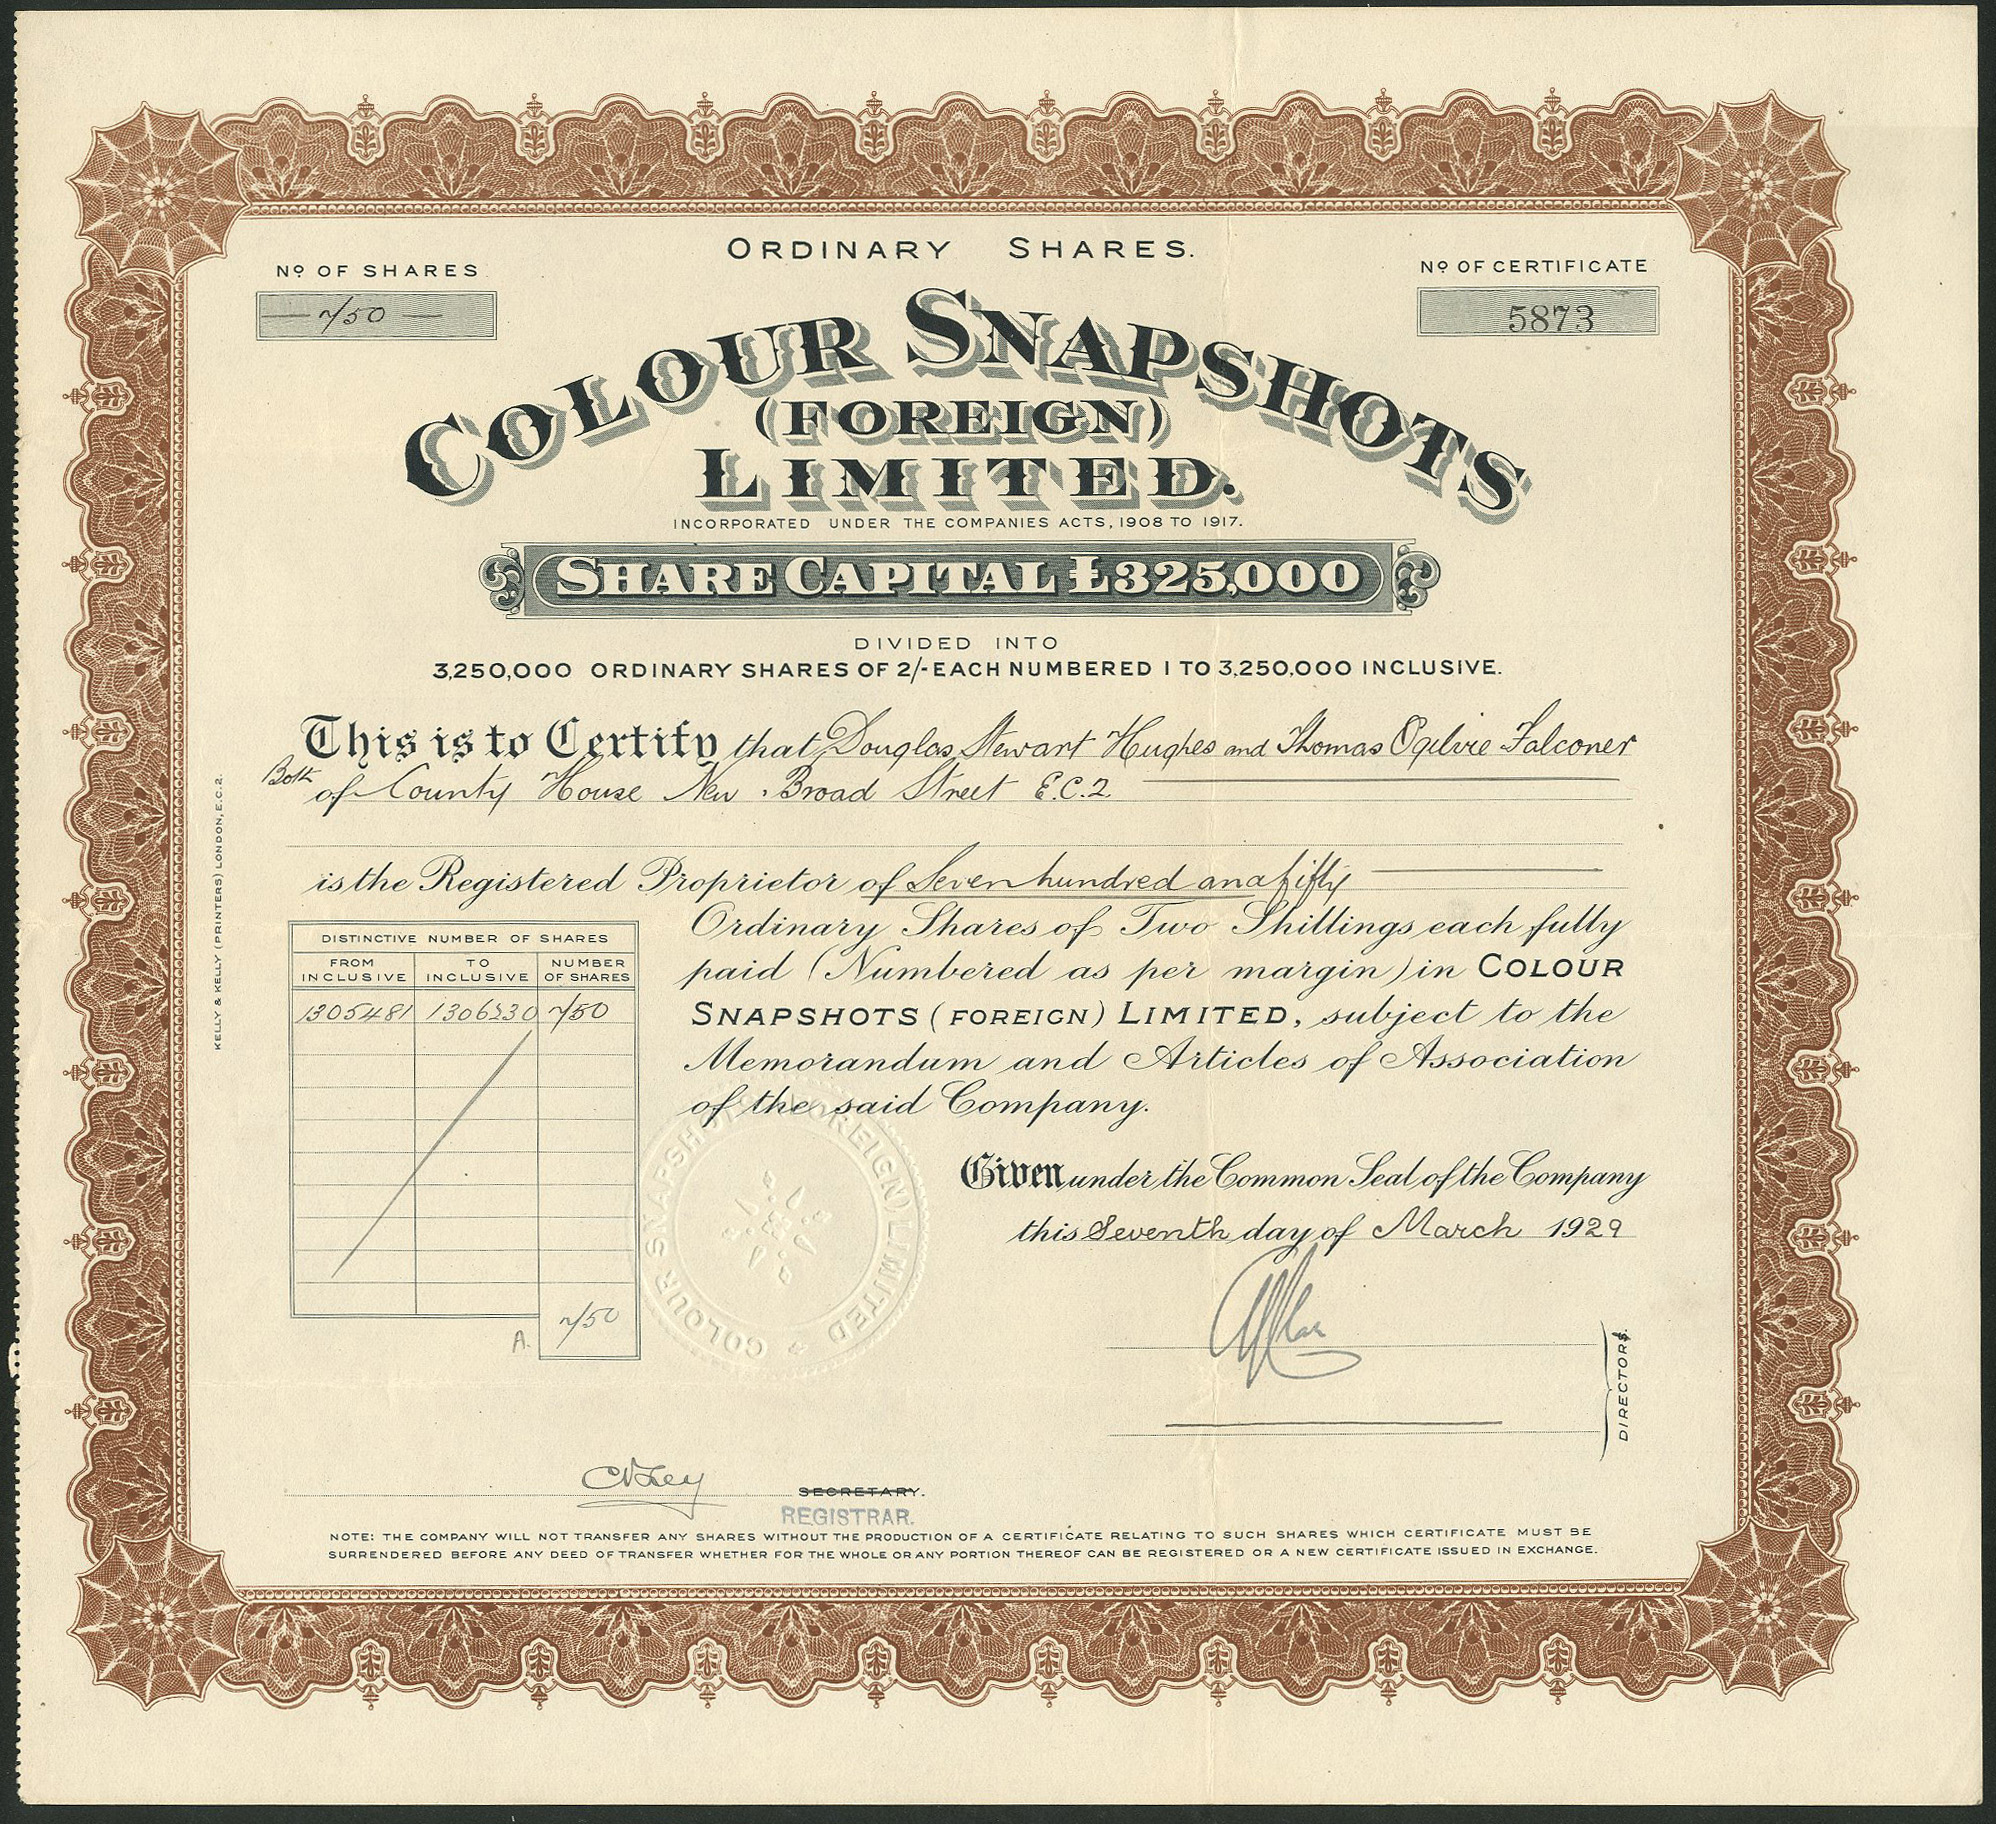 ORDINARY SHARES.
Nº OF SHARES
750
Nº OF CERTIFICATE
5873
COLOUR SNAPSHOTS
(FOREIGN)
LIMITED.
INCORPORATED UNDER THE COMPANIES ACTS, 1908 TO 1917.
SHARE CAPITAL £325,000
DIVIDED INTO
3,250,000 ORDINARY SHARES OF 2/- EACH NUMBERED 1 TO 3,250,000 INCLUSIVE.
This is to Certify that Douglas Stewart Hughes and Thomas Ogilvie Falconer
Both of County House New Broad Street E.C.2
is the Registered Proprietor of Seven hundred and fifty
Ordinary Shares of Two Shillings each fully
paid (Numbered as per margin) in COLOUR
SNAPSHOTS (FOREIGN) LIMITED, subject to the
Memorandum and Articles of Association
of the said Company.
DISTINCTIVE NUMBER OF SHARES
FROM INCLUSIVE TO INCLUSIVE NUMBER OF SHARES
1305481 1306230 750
A. 750
COLOUR SNAPSHOTS (FOREIGN) LIMITED
Given under the Common Seal of the Company
this Seventh day of March 1929
DIRECTORS.
SECRETARY.
REGISTRAR.
NOTE: THE COMPANY WILL NOT TRANSFER ANY SHARES WITHOUT THE PRODUCTION OF A CERTIFICATE RELATING TO SUCH SHARES WHICH CERTIFICATE MUST BE
SURRENDERED BEFORE ANY DEED OF TRANSFER WHETHER FOR THE WHOLE OR ANY PORTION THEREOF CAN BE REGISTERED OR A NEW CERTIFICATE ISSUED IN EXCHANGE.
KELLY & KELLY (PRINTERS) LONDON, E.C.2.